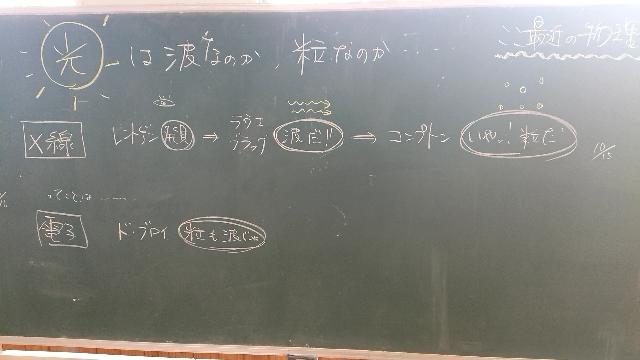 光 は波なのか、粒なのか……
最近の物理
X線 レントゲン 発見 ⇒ ラウエ ブラッグ 波だ!! ⇒ コンプトン いやっ!粒だ
10/15
ってことは……
電子 ド・ブロイ 粒も波じゃ